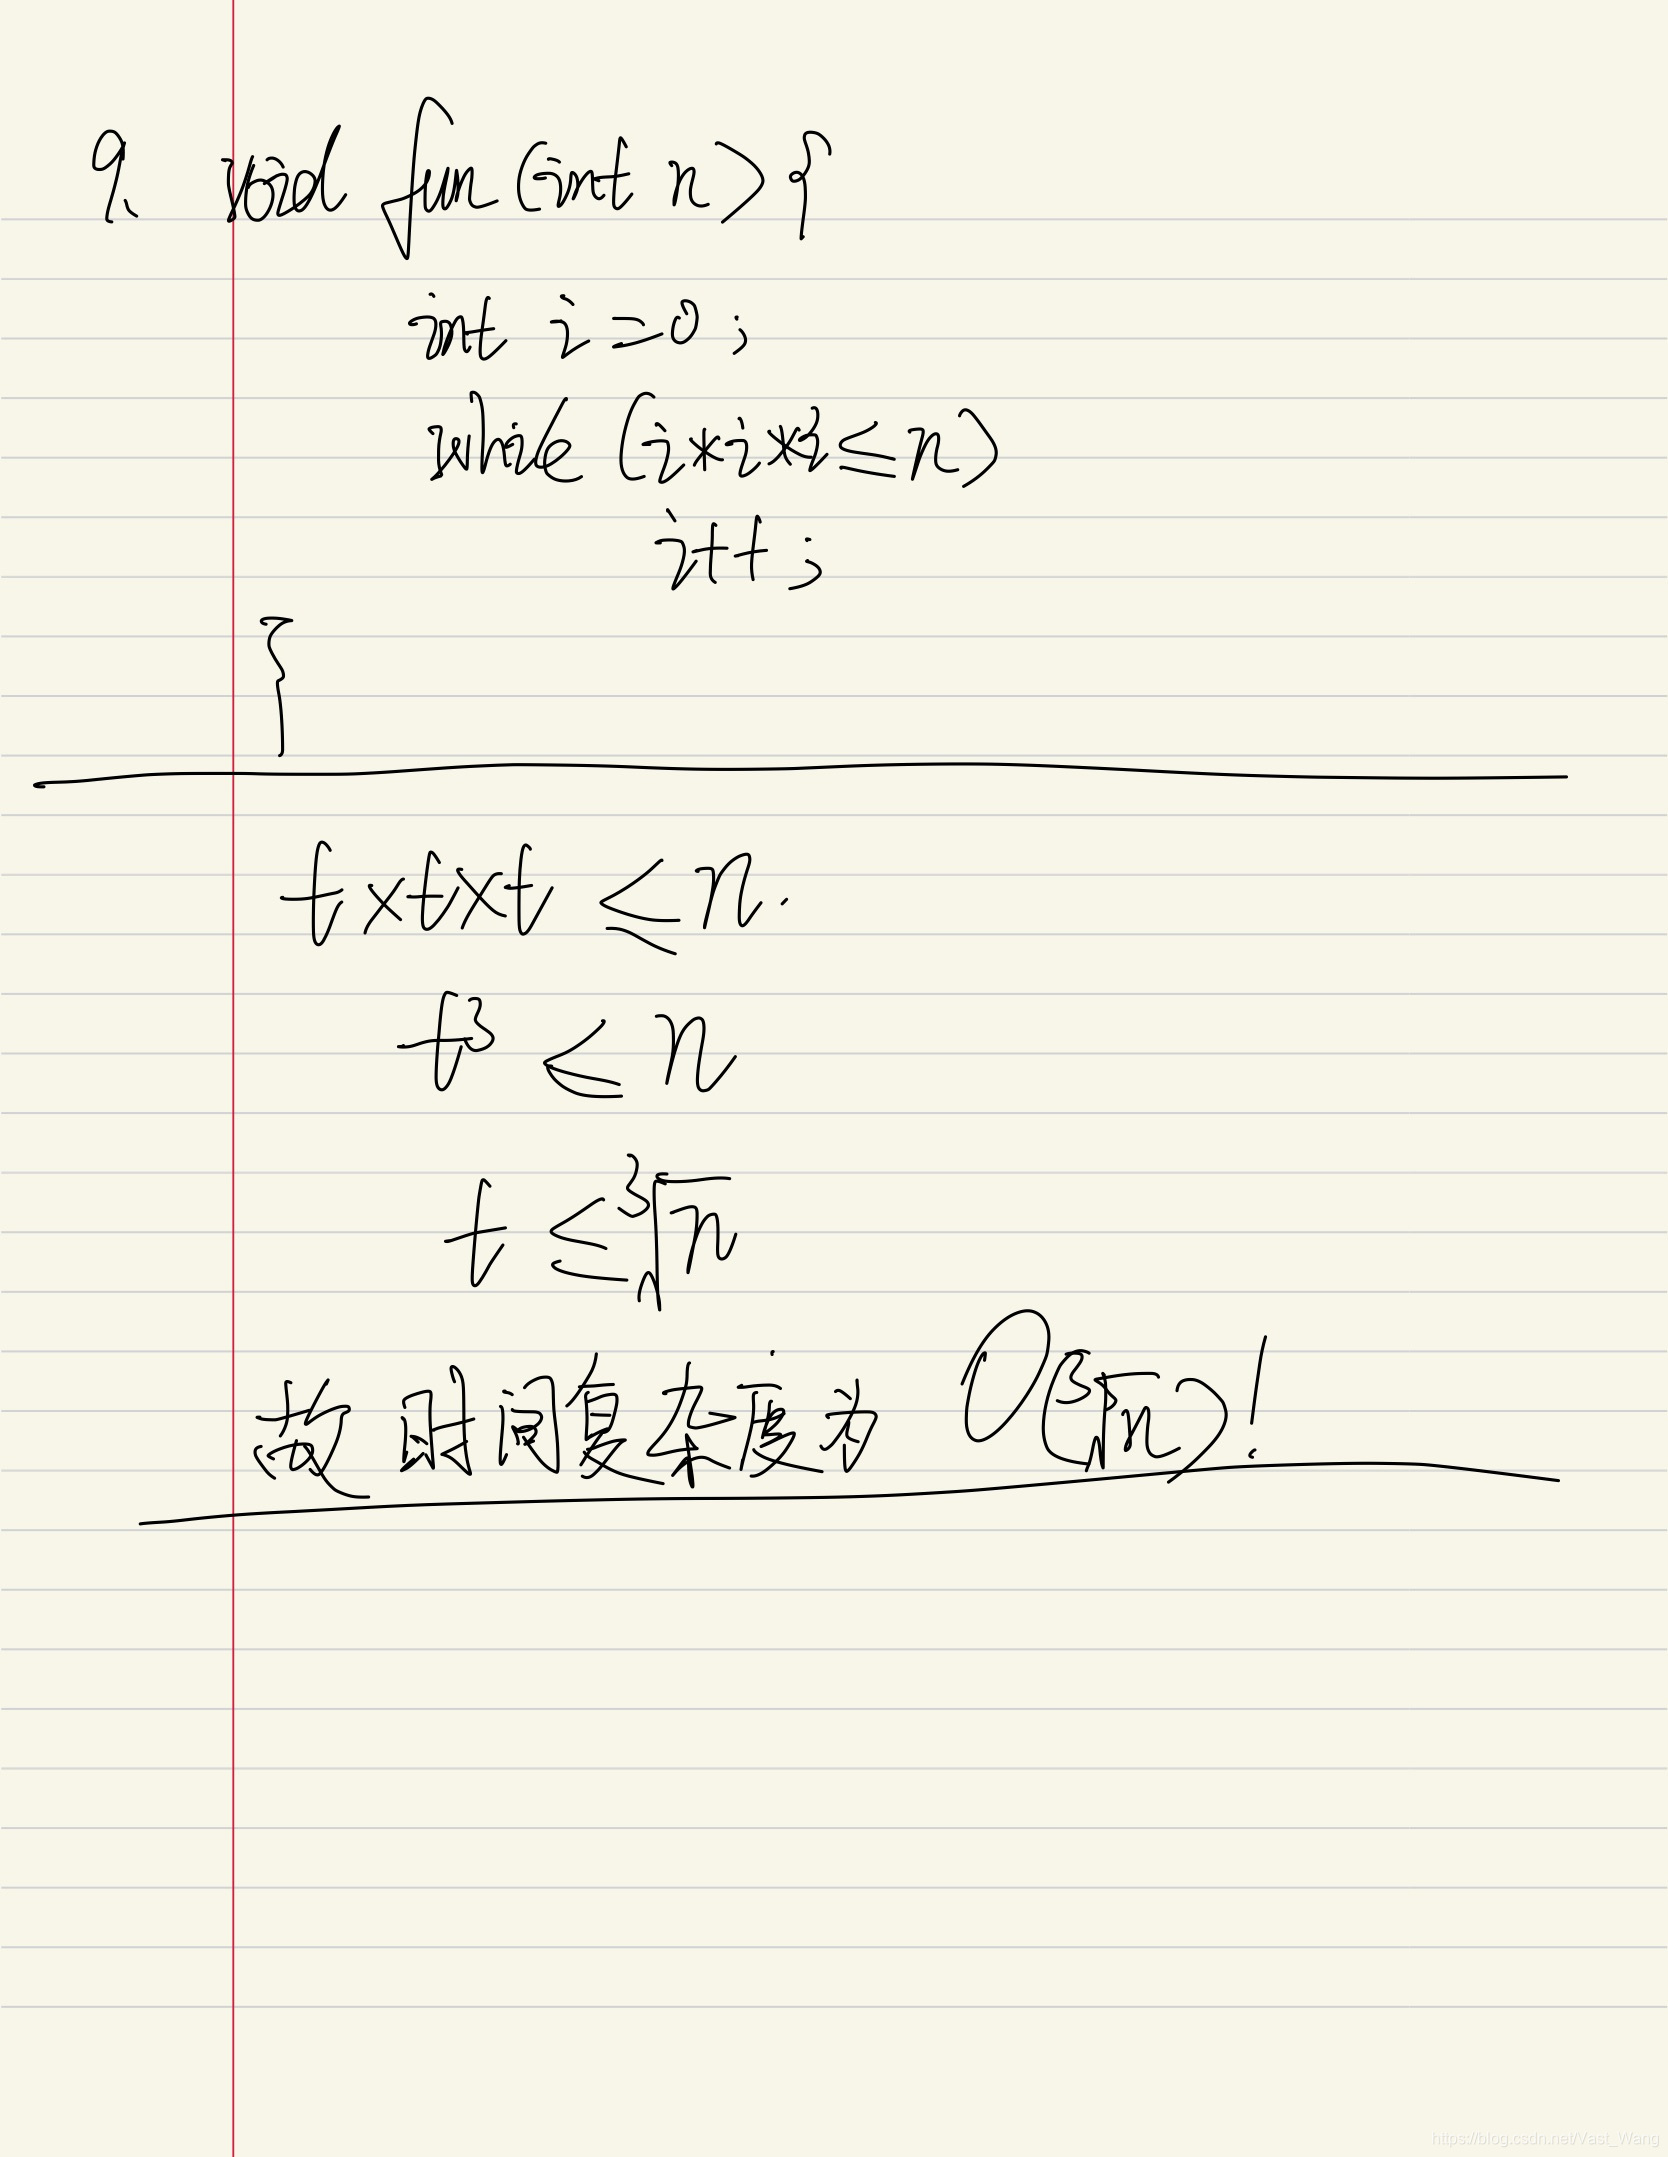 9. void fun(int n){
int i=0;
while (i*i*i≤n)
i++;
}
t×t×t≤n.
t³≤n
t≤∛n
故时间复杂度为 O(∛n)!
https://blog.csdn.net/Vast_Wang